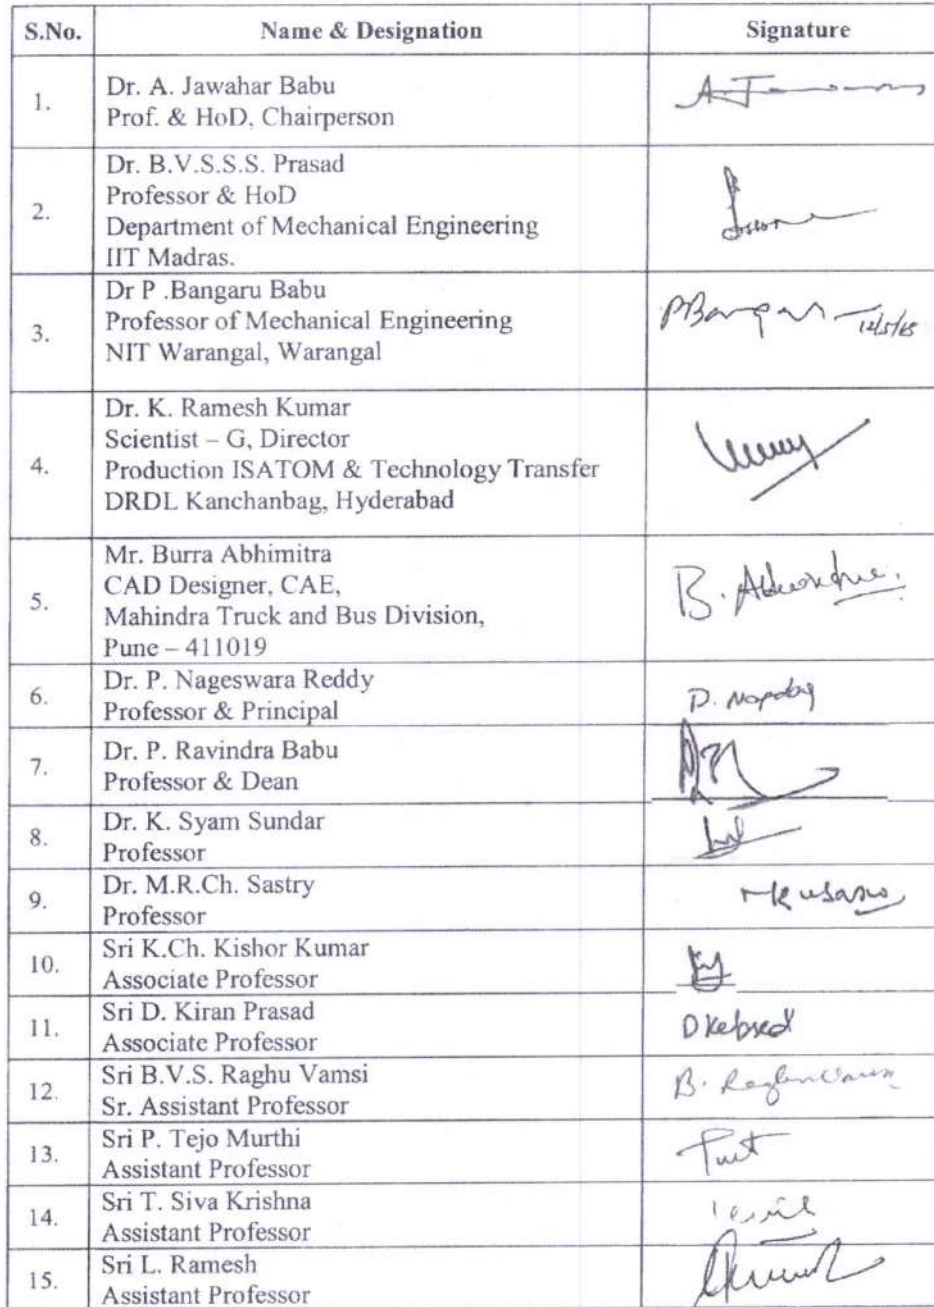 S.No. Name & Designation Signature
1. Dr. A. Jawahar Babu
Prof. & HoD, Chairperson
2. Dr. B.V.S.S.S. Prasad
Professor & HoD
Department of Mechanical Engineering
IIT Madras.
3. Dr P .Bangaru Babu
Professor of Mechanical Engineering
NIT Warangal, Warangal
12/5/15
4. Dr. K. Ramesh Kumar
Scientist – G, Director
Production ISATOM & Technology Transfer
DRDL Kanchanbag, Hyderabad
5. Mr. Burra Abhimitra
CAD Designer, CAE,
Mahindra Truck and Bus Division,
Pune – 411019
6. Dr. P. Nageswara Reddy
Professor & Principal
7. Dr. P. Ravindra Babu
Professor & Dean
8. Dr. K. Syam Sundar
Professor
9. Dr. M.R.Ch. Sastry
Professor
10. Sri K.Ch. Kishor Kumar
Associate Professor
11. Sri D. Kiran Prasad
Associate Professor
12. Sri B.V.S. Raghu Vamsi
Sr. Assistant Professor
13. Sri P. Tejo Murthi
Assistant Professor
14. Sri T. Siva Krishna
Assistant Professor
15. Sri L. Ramesh
Assistant Professor